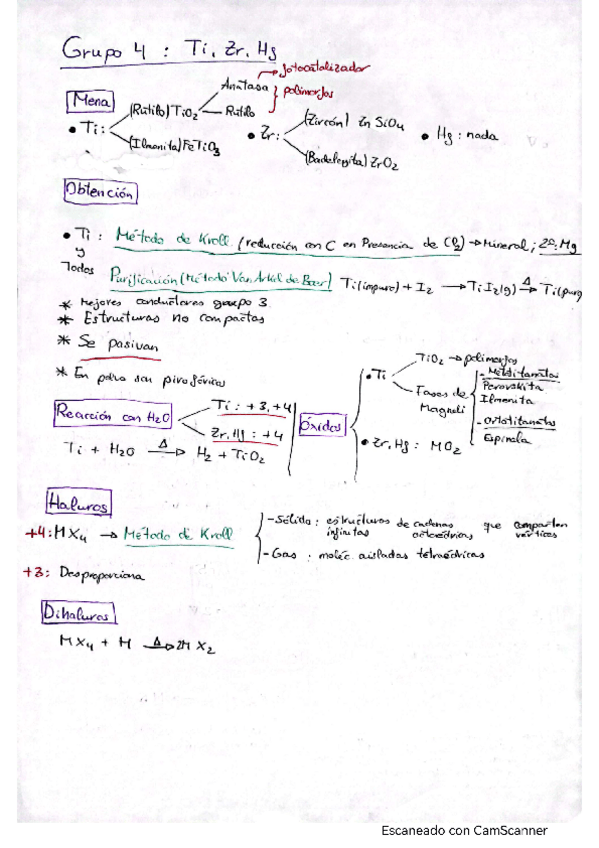 Grupo 4 : Ti, Zr, Hg
→ fotocatalizador
Mena
Anatasa } polimorfos
• Ti: (Rutilo) TiO2 Rutilo
(Ilmenita) FeTiO3
• Zr: (Zircón) Zn SiO4
(Badeleyita) ZrO2
• Hg: nada
Obtención
• Ti : Método de Kroll (reducción con C en Presencia de Cl2) → Mineral; 2º: Mg
y
Todos Purificación (Método Van Arkel de Boer) Ti (impuro) + I2 → Ti I2 (g) Δ→ Ti (puro
* Mejores conductores grupo 3
* Estructuras no compactas
* Se pasivan
* En polvo son pirofóricos
Reacción con H2O
Ti : +3, +4
Zr, Hg : +4
Ti + H2O Δ→ H2 + TiO2
Óxidos
• Ti
TiO2 → polimorfos
Fases de Magneli
- Metatitanatos
Perovskita
Ilmenita
- Ortotitanatos
Espinela
• Zr, Hg : MO2
Haluros
+4: MX4 → Método de Kroll
- Sólido : estructuras de cadenas que comparten
infinitas octaédricas vértices
- Gas : moléc. aisladas tetraédricas
+3: Desproporciona
Dihaluros
MX4 + M Δ→ 2M X2
Escaneado con CamScanner